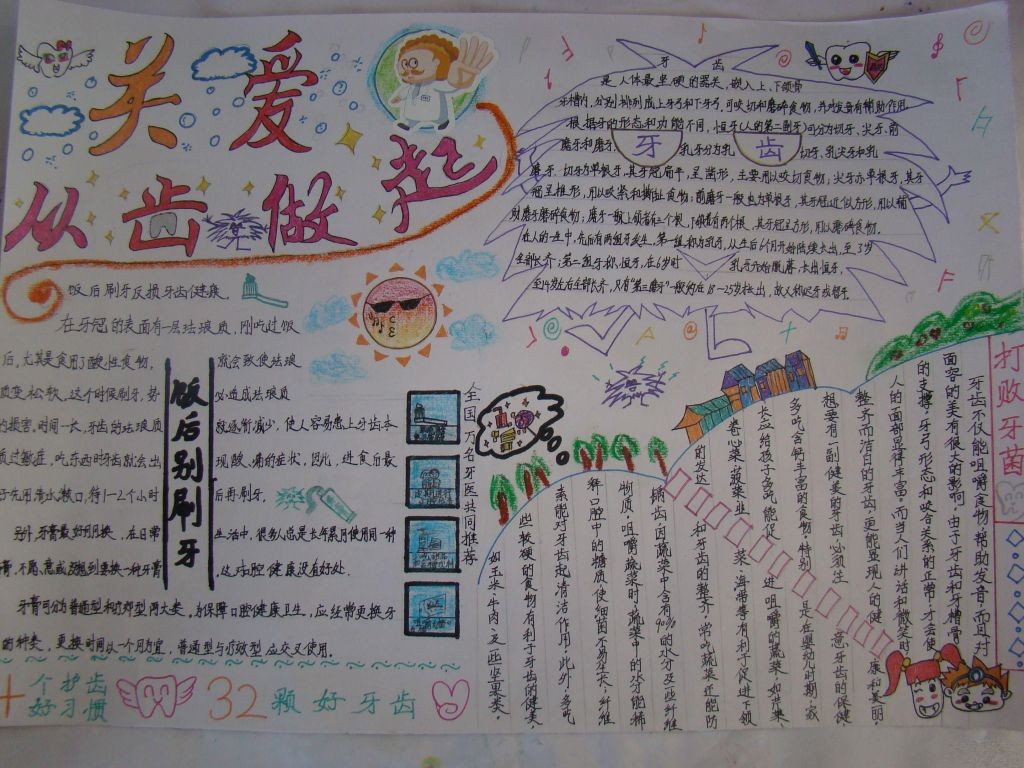 关爱
从齿做起
牙 齿
是人体最坚硬的器关，嵌入上、下颌骨
牙槽内，分别排列成上牙弓和下牙弓，可咬切和磨碎食物，并对发音有辅助作用
根据牙的形态和功能不同，恒牙(人的第二副牙)可分为切牙、尖牙、前
磨牙和磨牙 牙 乳牙分为乳 齿 切牙、乳尖牙和乳
磨牙. 切牙为单根牙，其牙冠扁平，呈凿形，主要用以咬切食物；尖牙亦单根牙，其牙
冠呈锥形，用以咬紧和撕扯食物；前磨牙一般也为单根牙，其牙冠近似方形，用以辅
助磨牙磨碎食物；磨牙一般上颌者有三个根，下颌者有两个根，其牙冠立方形，用以磨碎食物.
在人的一生中，先后有两组牙发生，第一组称为乳牙，从生后6个月开始陆续长出，至3岁
全部长齐；第二组牙称恒牙，在6岁时 乳牙开始脱落，长出恒牙，
至14岁左右全部长齐，只有"第三磨牙"一般约在18-25岁长出，故又称迟牙或智牙.
饭后刷牙反损牙齿健康.
在牙冠的表面有一层珐琅质，刚吃过饭
后，尤其是食用了酸性食物， 就会致使珐琅
质变松软，这个时候刷牙，势 必造成珐琅质
的损害，时间一长，牙齿的珐琅质 就逐渐减少，使人容易患上牙齿本
质过敏症，吃东西时牙齿就会出 现酸、痛的症状，因此，进食后最
好先用清水漱口，待1-2个小时 后再刷牙.
饭后别刷牙
另外，牙膏最好勤换，在日常 生活中，很多人总是长年累月使用同一种
牙膏，不愿意或想到要换一种牙膏 这对口腔健康没有好处.
牙膏可分为普通型和疗效型两大类，为保障口腔健康卫生，应经常更换牙
膏的种类，更换时间以一个月为宜，普通型与疗效型应交叉使用.
十个护齿好习惯
32颗好牙齿
全国万名牙医共同推荐
打败牙菌
牙齿不仅能咀嚼食物、帮助发音，而且对
面容的美有很大的影响。由于牙齿和牙槽骨
的支撑，牙弓形态和咬合关系的正常，才会使
人的面部显得丰富。而当人们讲话和微笑时
整齐而洁白的牙齿，更能显现人的健康和美丽，
想要有一副健美的牙齿，必须注意牙齿的保健
多吃含钙丰富的食物，特别是在婴幼时期，家
长应给孩子多吃能促进咀嚼的蔬菜，如芹菜
卷心菜、菠菜、韭菜、海带等有利于促进下颌
的发达和牙齿的整齐，常吃蔬菜还能防
龋齿，因蔬菜中含有90%的水分及一些纤维
物质，咀嚼蔬菜时，蔬菜中的水分能稀
释口腔中的糖质，使细菌不易生长，纤维
素能对牙齿起清洁作用，此外，多吃
些较硬的食物有利于牙齿的健美，
如玉米、牛肉及一些坚果类。